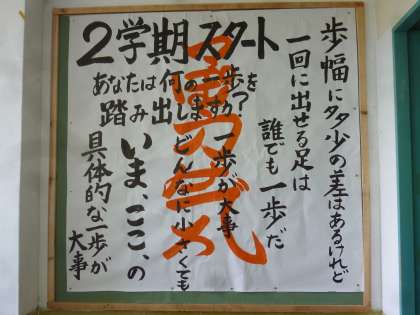 2学期スタート
あなたは何の一歩を
踏み出しますか?
歩幅に多少の差はあるけれど
一回に出せる足は
誰でも一歩だ
一歩が大事
どんなに小さくても
いま、ここ、の
具体的な一歩が
大事
勇気